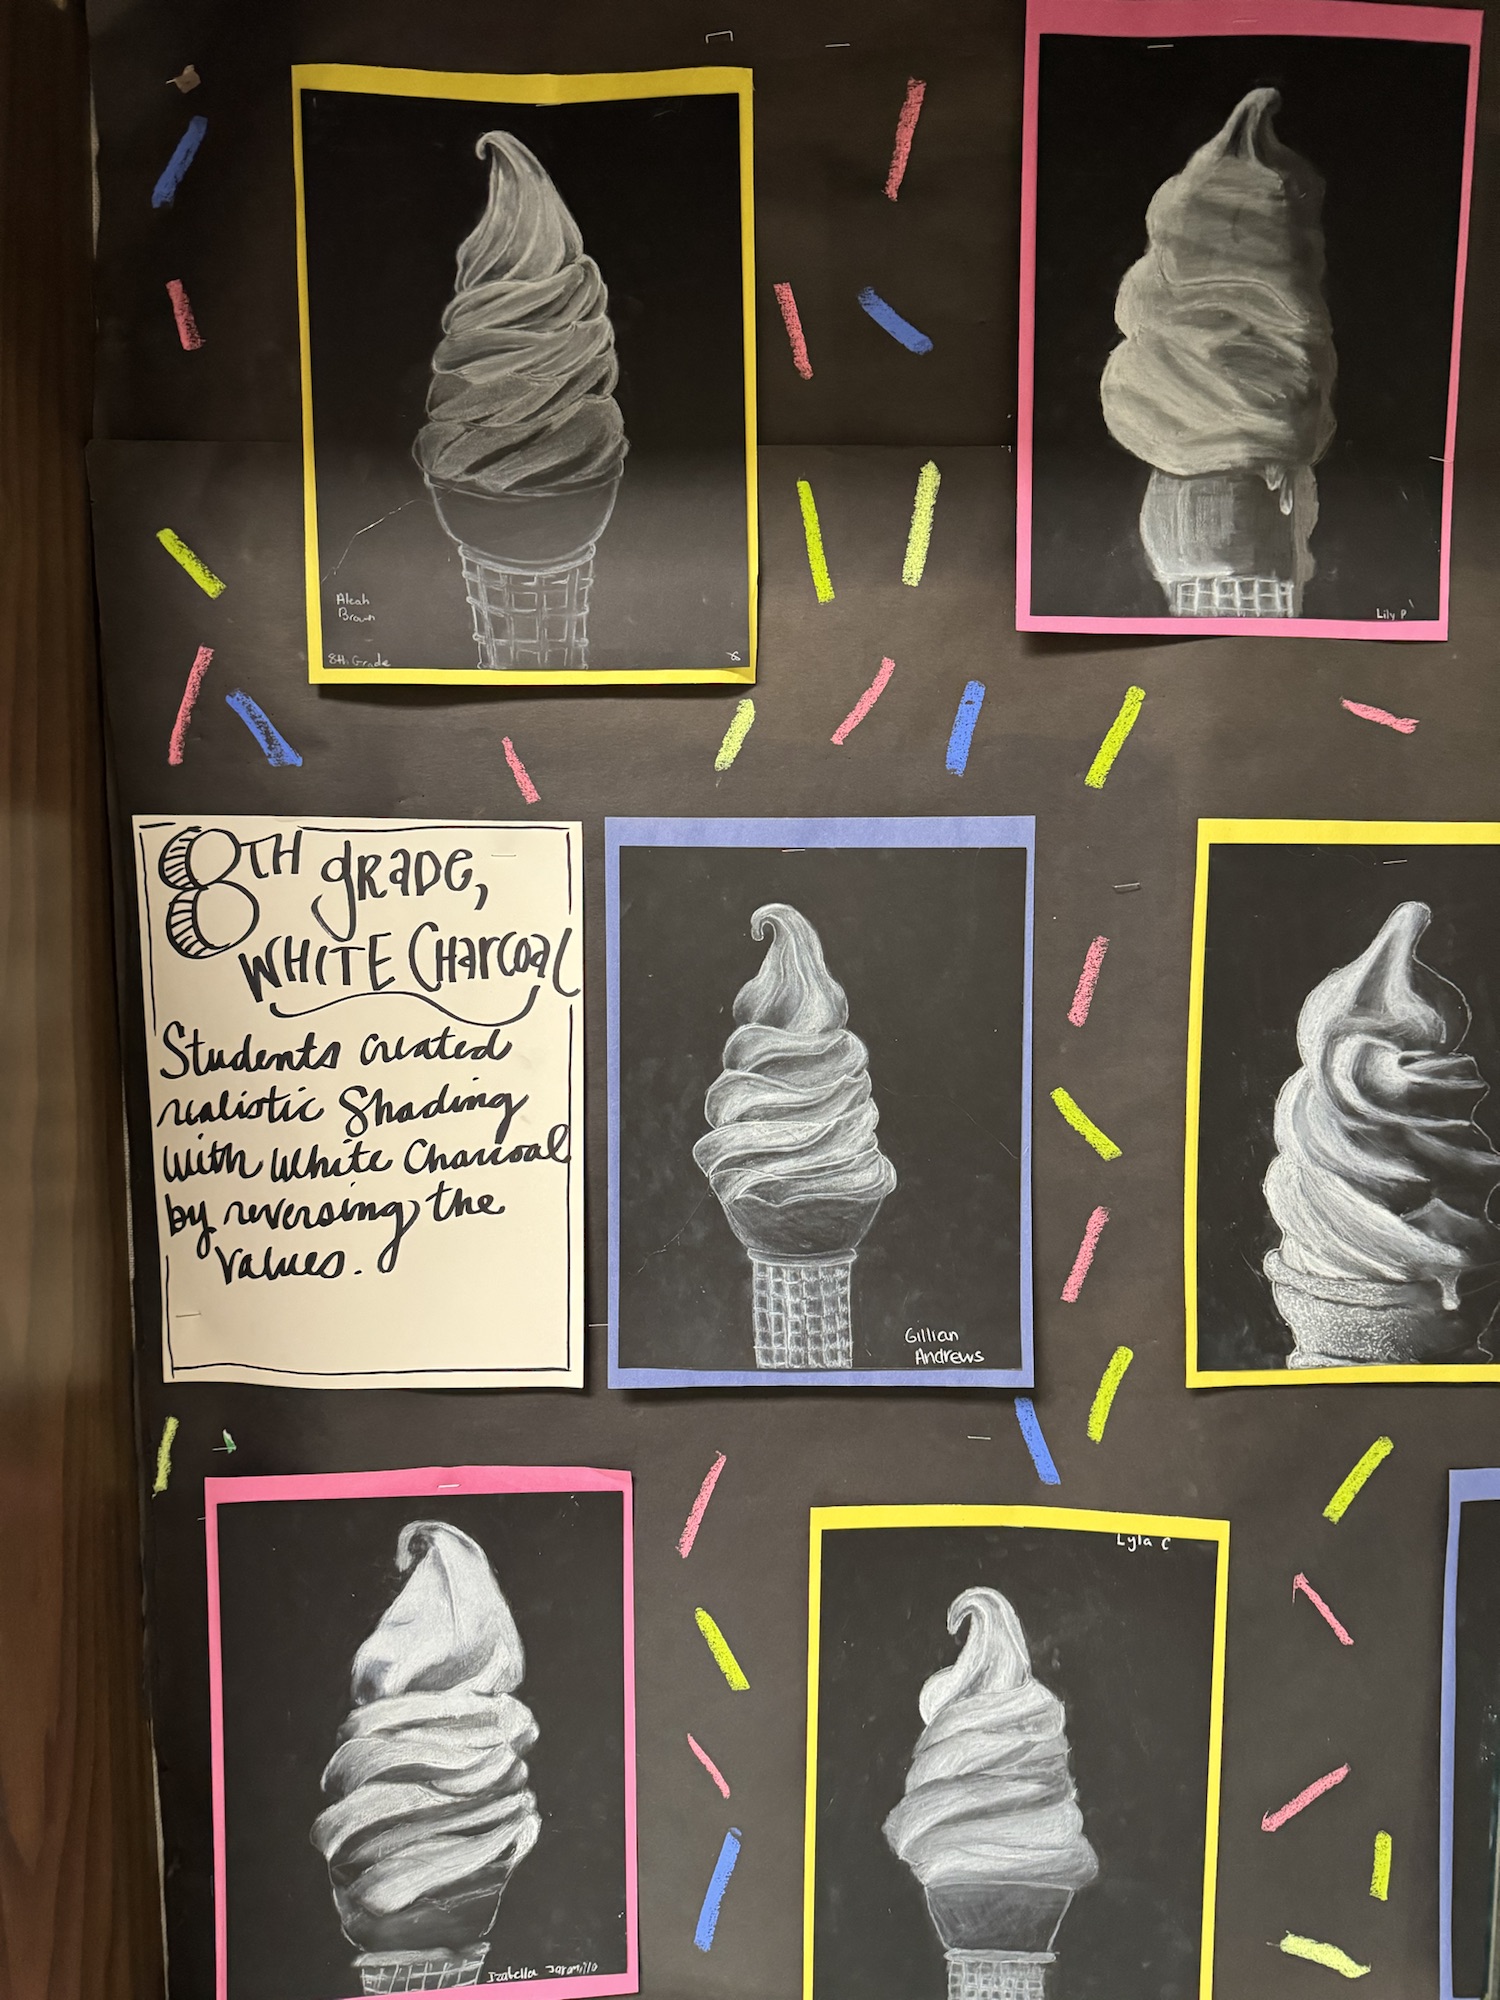 Aleah
Brown
8th Grade
Lily P
8TH grade,
WHITE Charcoal
Students created
realistic Shading
with White Charcoal
by reversing the
values.
Gillian
Andrews
Izabella Jaramillo
Lyla C